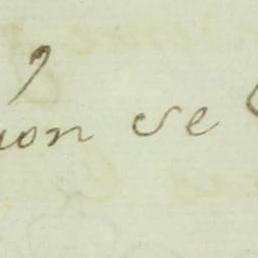 ion se